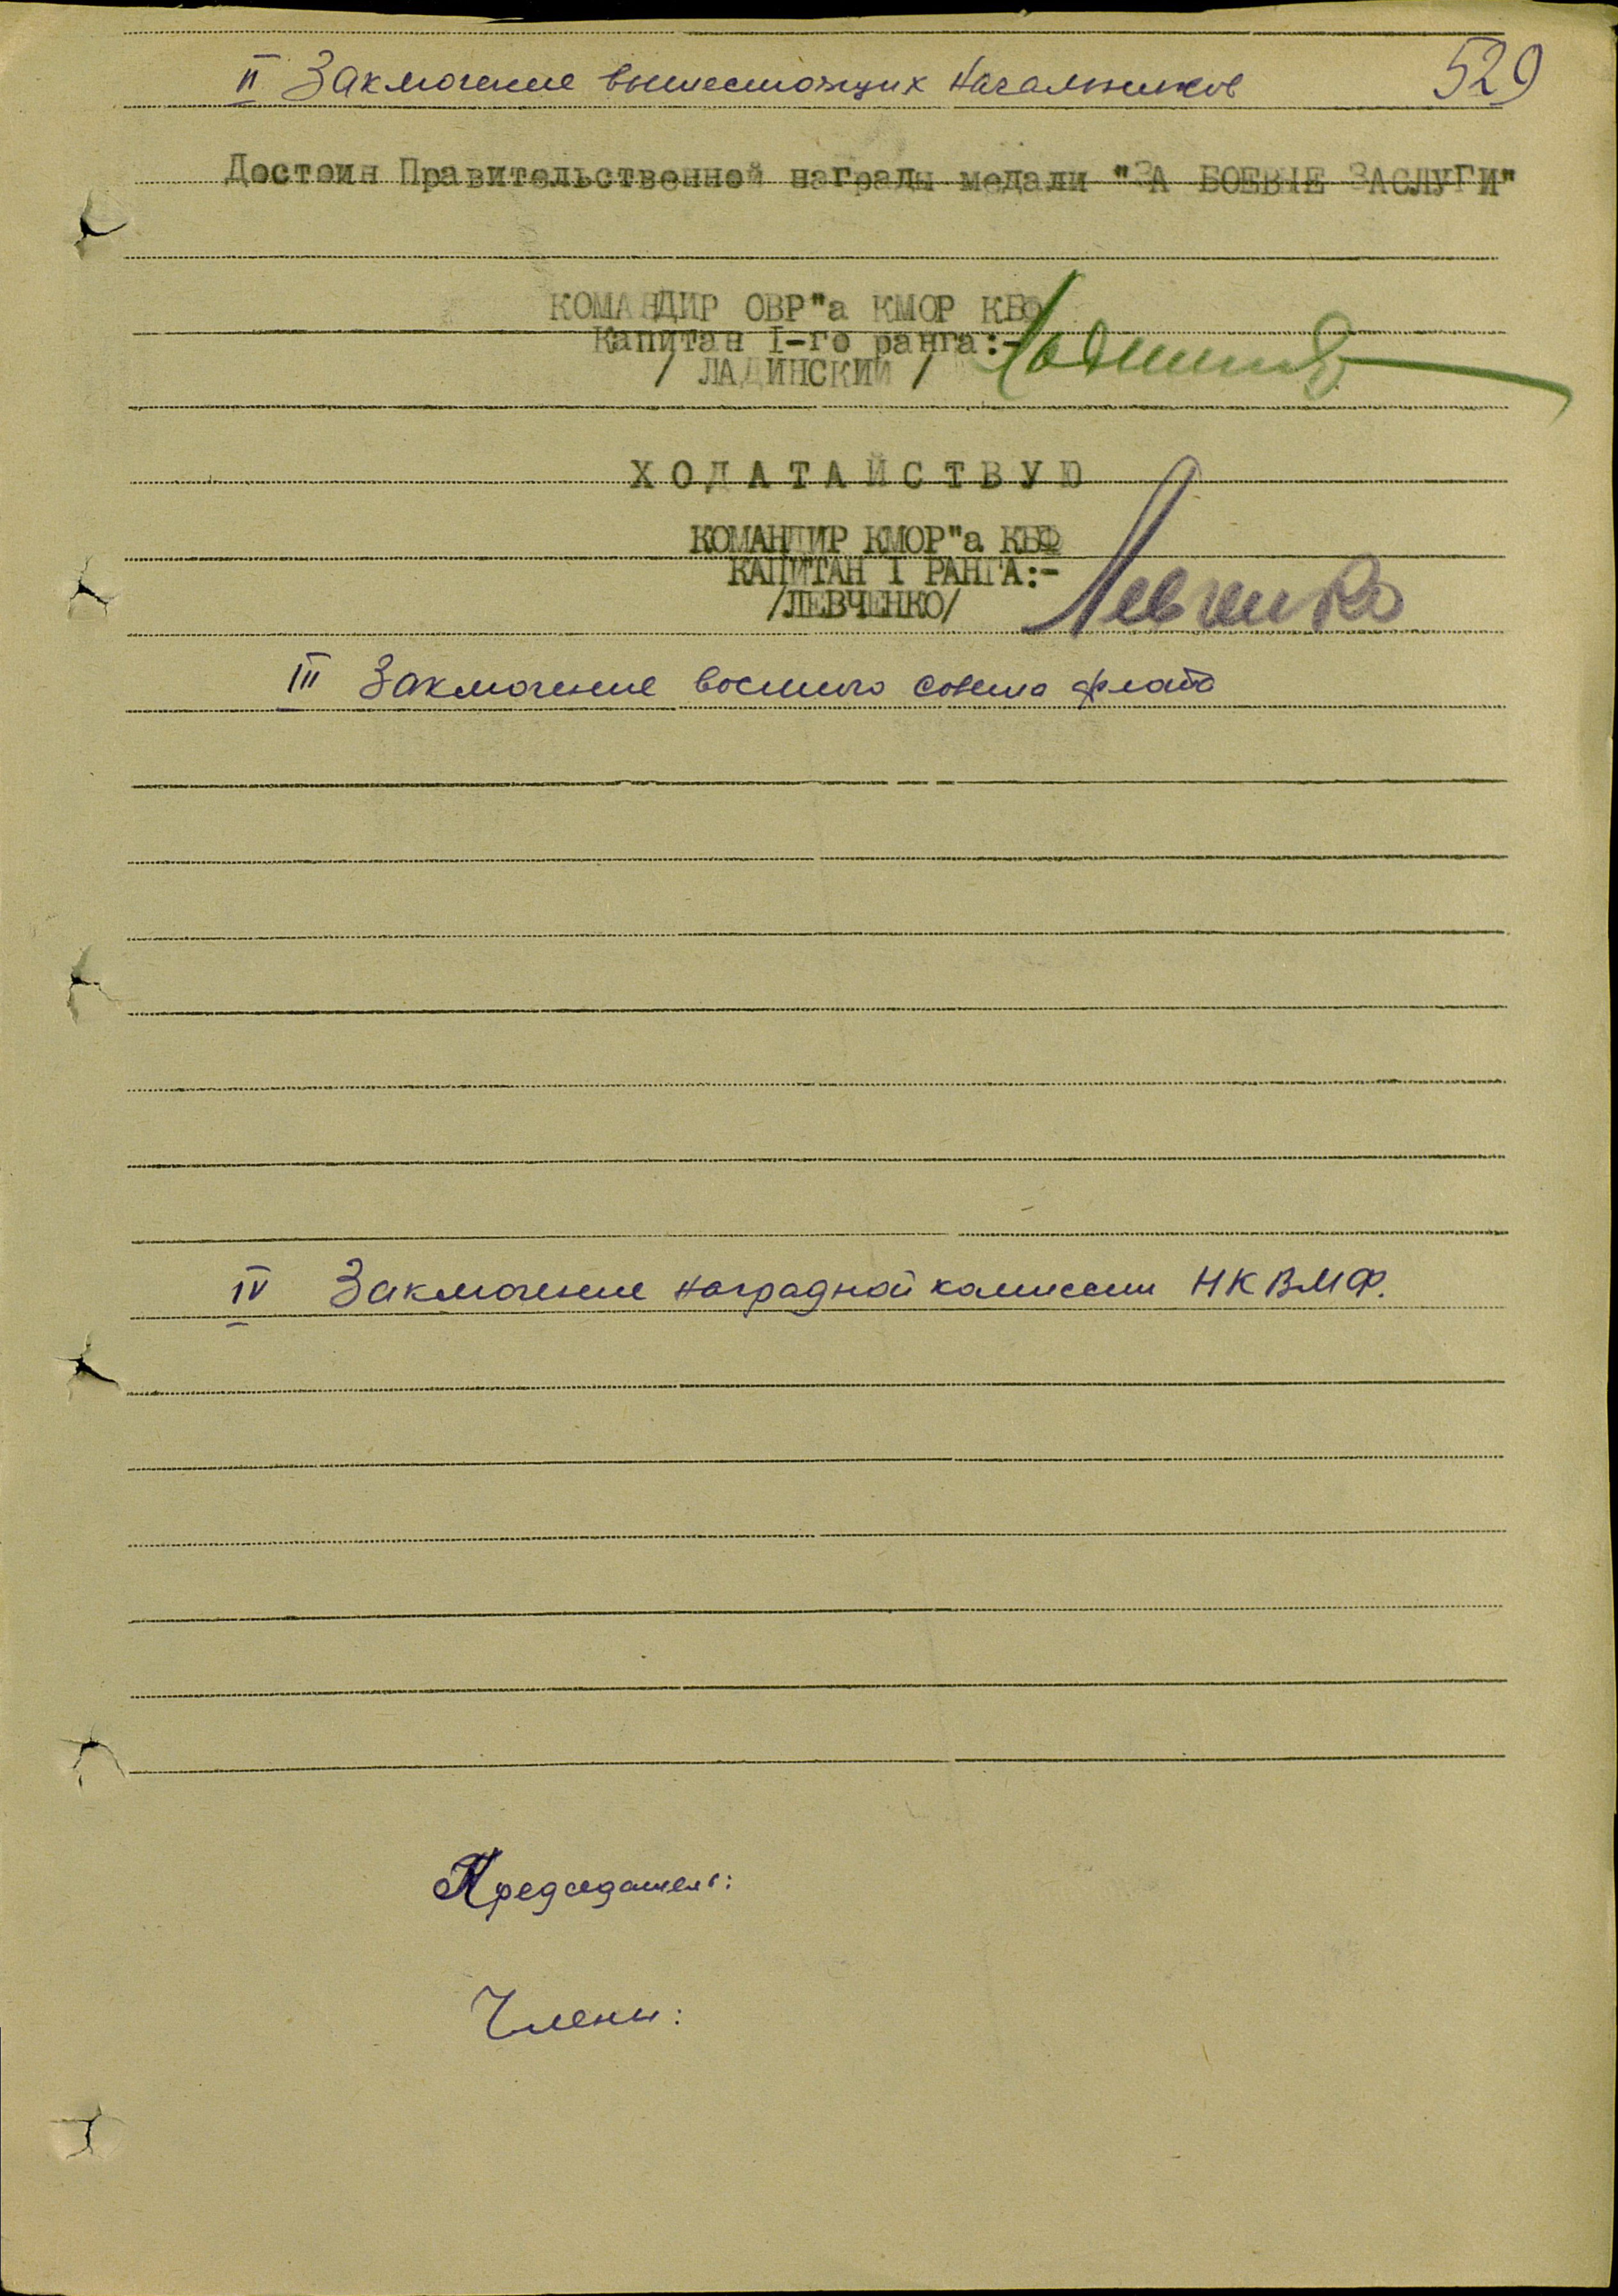 529
II Заключение вышестоящих начальников
Достоин Правительственной награды медали "ЗА БОЕВЫЕ ЗАСЛУГИ"
КОМАНДИР ОВР"а КМОР КБФ
Капитан I-го ранга:-
/ ЛАДИНСКИЙ /
ХОДАТАЙСТВУЮ
КОМАНДИР КМОР"а КБФ
КАПИТАН I РАНГА:-
/ЛЕВЧЕНКО/ Левченко
III Заключение военного совета флота
IV Заключение наградной комиссии НКВМФ.
Председатель:
Члены: